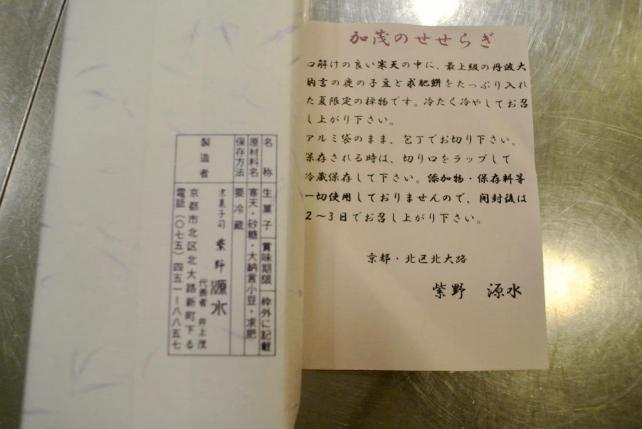 加茂のせせらぎ
口解けの良い寒天の中に、最上級の丹波大
納言の鹿の子豆と求肥餅をたっぷり入れ
た夏限定の棹物です。冷たく冷やしてお召
し上がり下さい。
アルミ袋のまま、包丁でお切り下さい。
保存される時は、切り口をラップして
冷蔵保存して下さい。添加物・保存料等
一切使用しておりませんので、開封後は
2〜3日でお召し上がり下さい。
京都・北区北大路
紫野 源水
名称 生菓子 賞味期限 枠外に記載
原材料名 寒天・砂糖・大納言小豆・求肥
保存方法 要冷蔵
製造者 京菓子司 紫野 源水
代表者 井上茂
京都市北区北大路新町下る
電話(〇七五)四五一ー八八五七